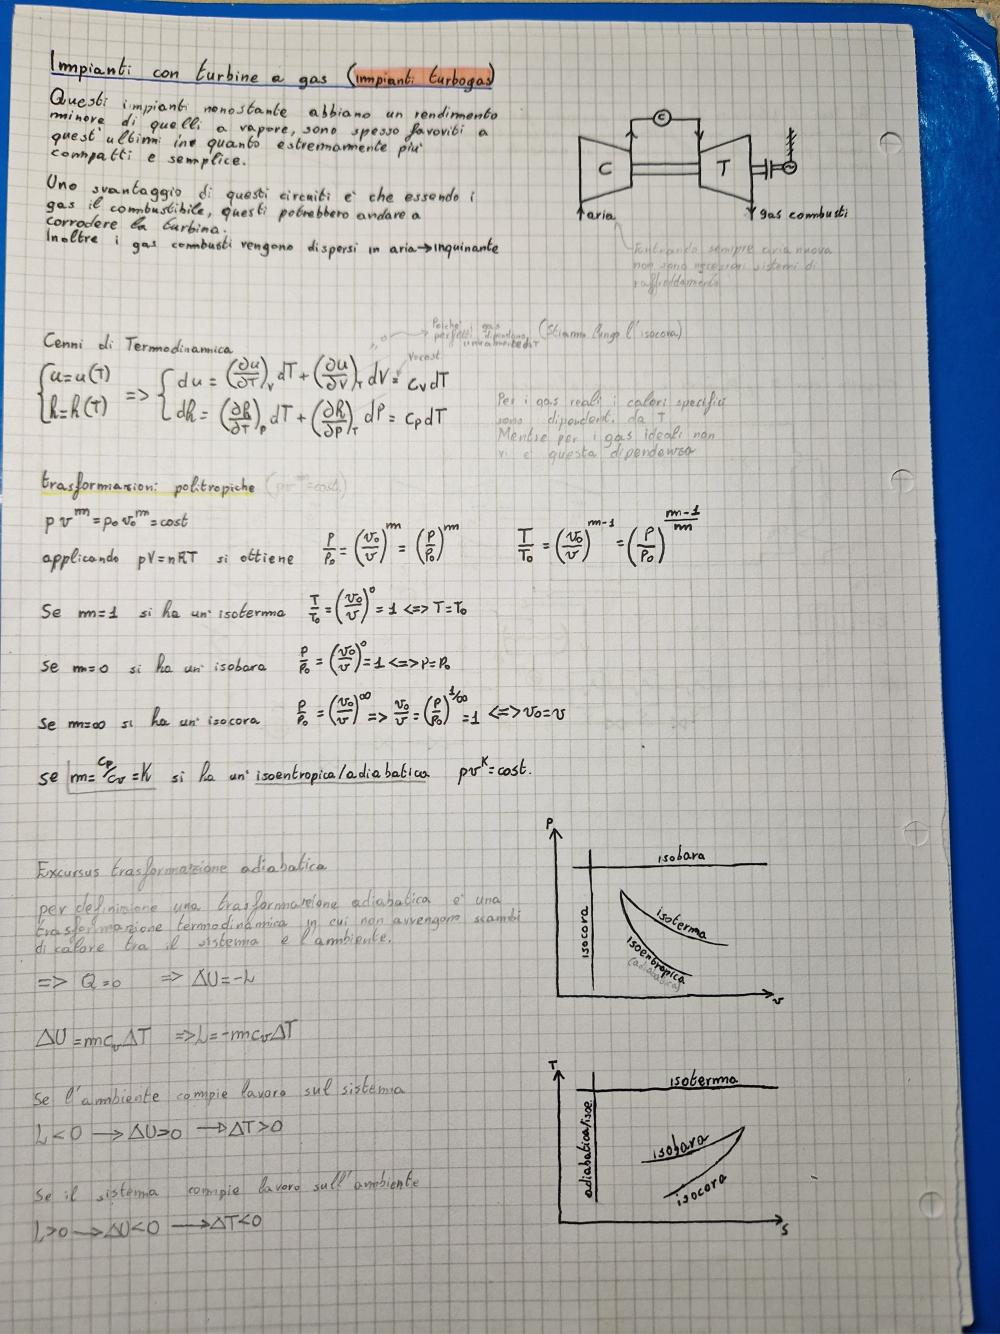 Impianti con turbine a gas (impianti turbogas)
Questi impianti nonostante abbiano un rendimento
minore di quelli a vapore, sono spesso favoriti a
quest'ultimi in quanto estremamente più
compatti e semplice.
Uno svantaggio di questi circuiti è che essendo i
gas il combustibile, questi potrebbero andare a
corrodere la turbina.
Inoltre i gas combusti vengono dispersi in aria→inquinante
C
C T
aria
gas combusti
Entrando sempre aria nuova
non sono necessari sistemi di
raffreddamento
Cenni di Termodinamica
Poiché i gas
perfetti dipendono
unicamente da T
(Stiamo lungo l'isocora)
V=cost
{u=u(T) => {du = (∂u/∂T)_V dT + (∂u/∂V)_T dV = c_V dT
{h=h(T) {dh = (∂h/∂T)_P dT + (∂h/∂P)_T dP = c_P dT
Per i gas reali i calori specifici
sono dipendenti da T
Mentre per i gas ideali non
vi è questa dipendenza
trasformazioni politropiche (pv^m=cost)
pv^m = p₀v₀^m = cost
applicando pV=nRT si ottiene P/P₀ = (v₀/v)^m = (P/P₀)^m T/T₀ = (v₀/v)^(m-1) = (P/P₀)^((m-1)/m)
Se m=1 si ha un'isoterma T/T₀ = (v₀/v)^0 = 1 <=> T=T₀
se m=0 si ha un'isobara P/P₀ = (v₀/v)^0 = 1 <=> P=P₀
se m=∞ si ha un'isocora P/P₀ = (v₀/v)^∞ => v₀/v = (P/P₀)^(1/∞) = 1 <=> v₀=v
se m= cp/cv =K si ha un'isoentropica/adiabatica pv^K=cost.
Excursus trasformazione adiabatica
per definizione una trasformazione adiabatica è una
trasformazione termodinamica in cui non avvengono scambi
di calore tra il sistema e l'ambiente.
=> Q=0 => ΔU=-L
ΔU=mc_vΔT => L=-mc_vΔT
Se l'ambiente compie lavoro sul sistema
L<0 → ΔU>0 → ΔT>0
Se il sistema compie lavoro sull'ambiente
L>0 → ΔU<0 → ΔT<0
P
isobara
isocora
isoterma
isoentropica
(adiabatica)
v
T
isoterma
adiabatica/isoe.
isobara
isocora
s